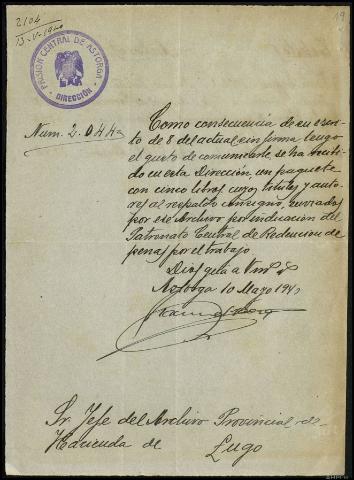 2104
13-V-19
19
PRISION CENTRAL DE ASTORGA
* DIRECCIÓN *
Num. 2.044
Como consecuencia de su escri-
to de 8 del actual, sin firma tengo
el gusto de comunicarle, se ha recibi-
do en esta Dirección, un paquete
con cinco libros cuyos títulos y auto-
res al respaldo consigno, enviados
por ese Archivo por indicación del
Patronato Central de Redención de
penas por el trabajo.
Dios gue a
Astorga 10 Mayo 194
Sr. Jefe del Archivo Provincial de
Hacienda de Lugo